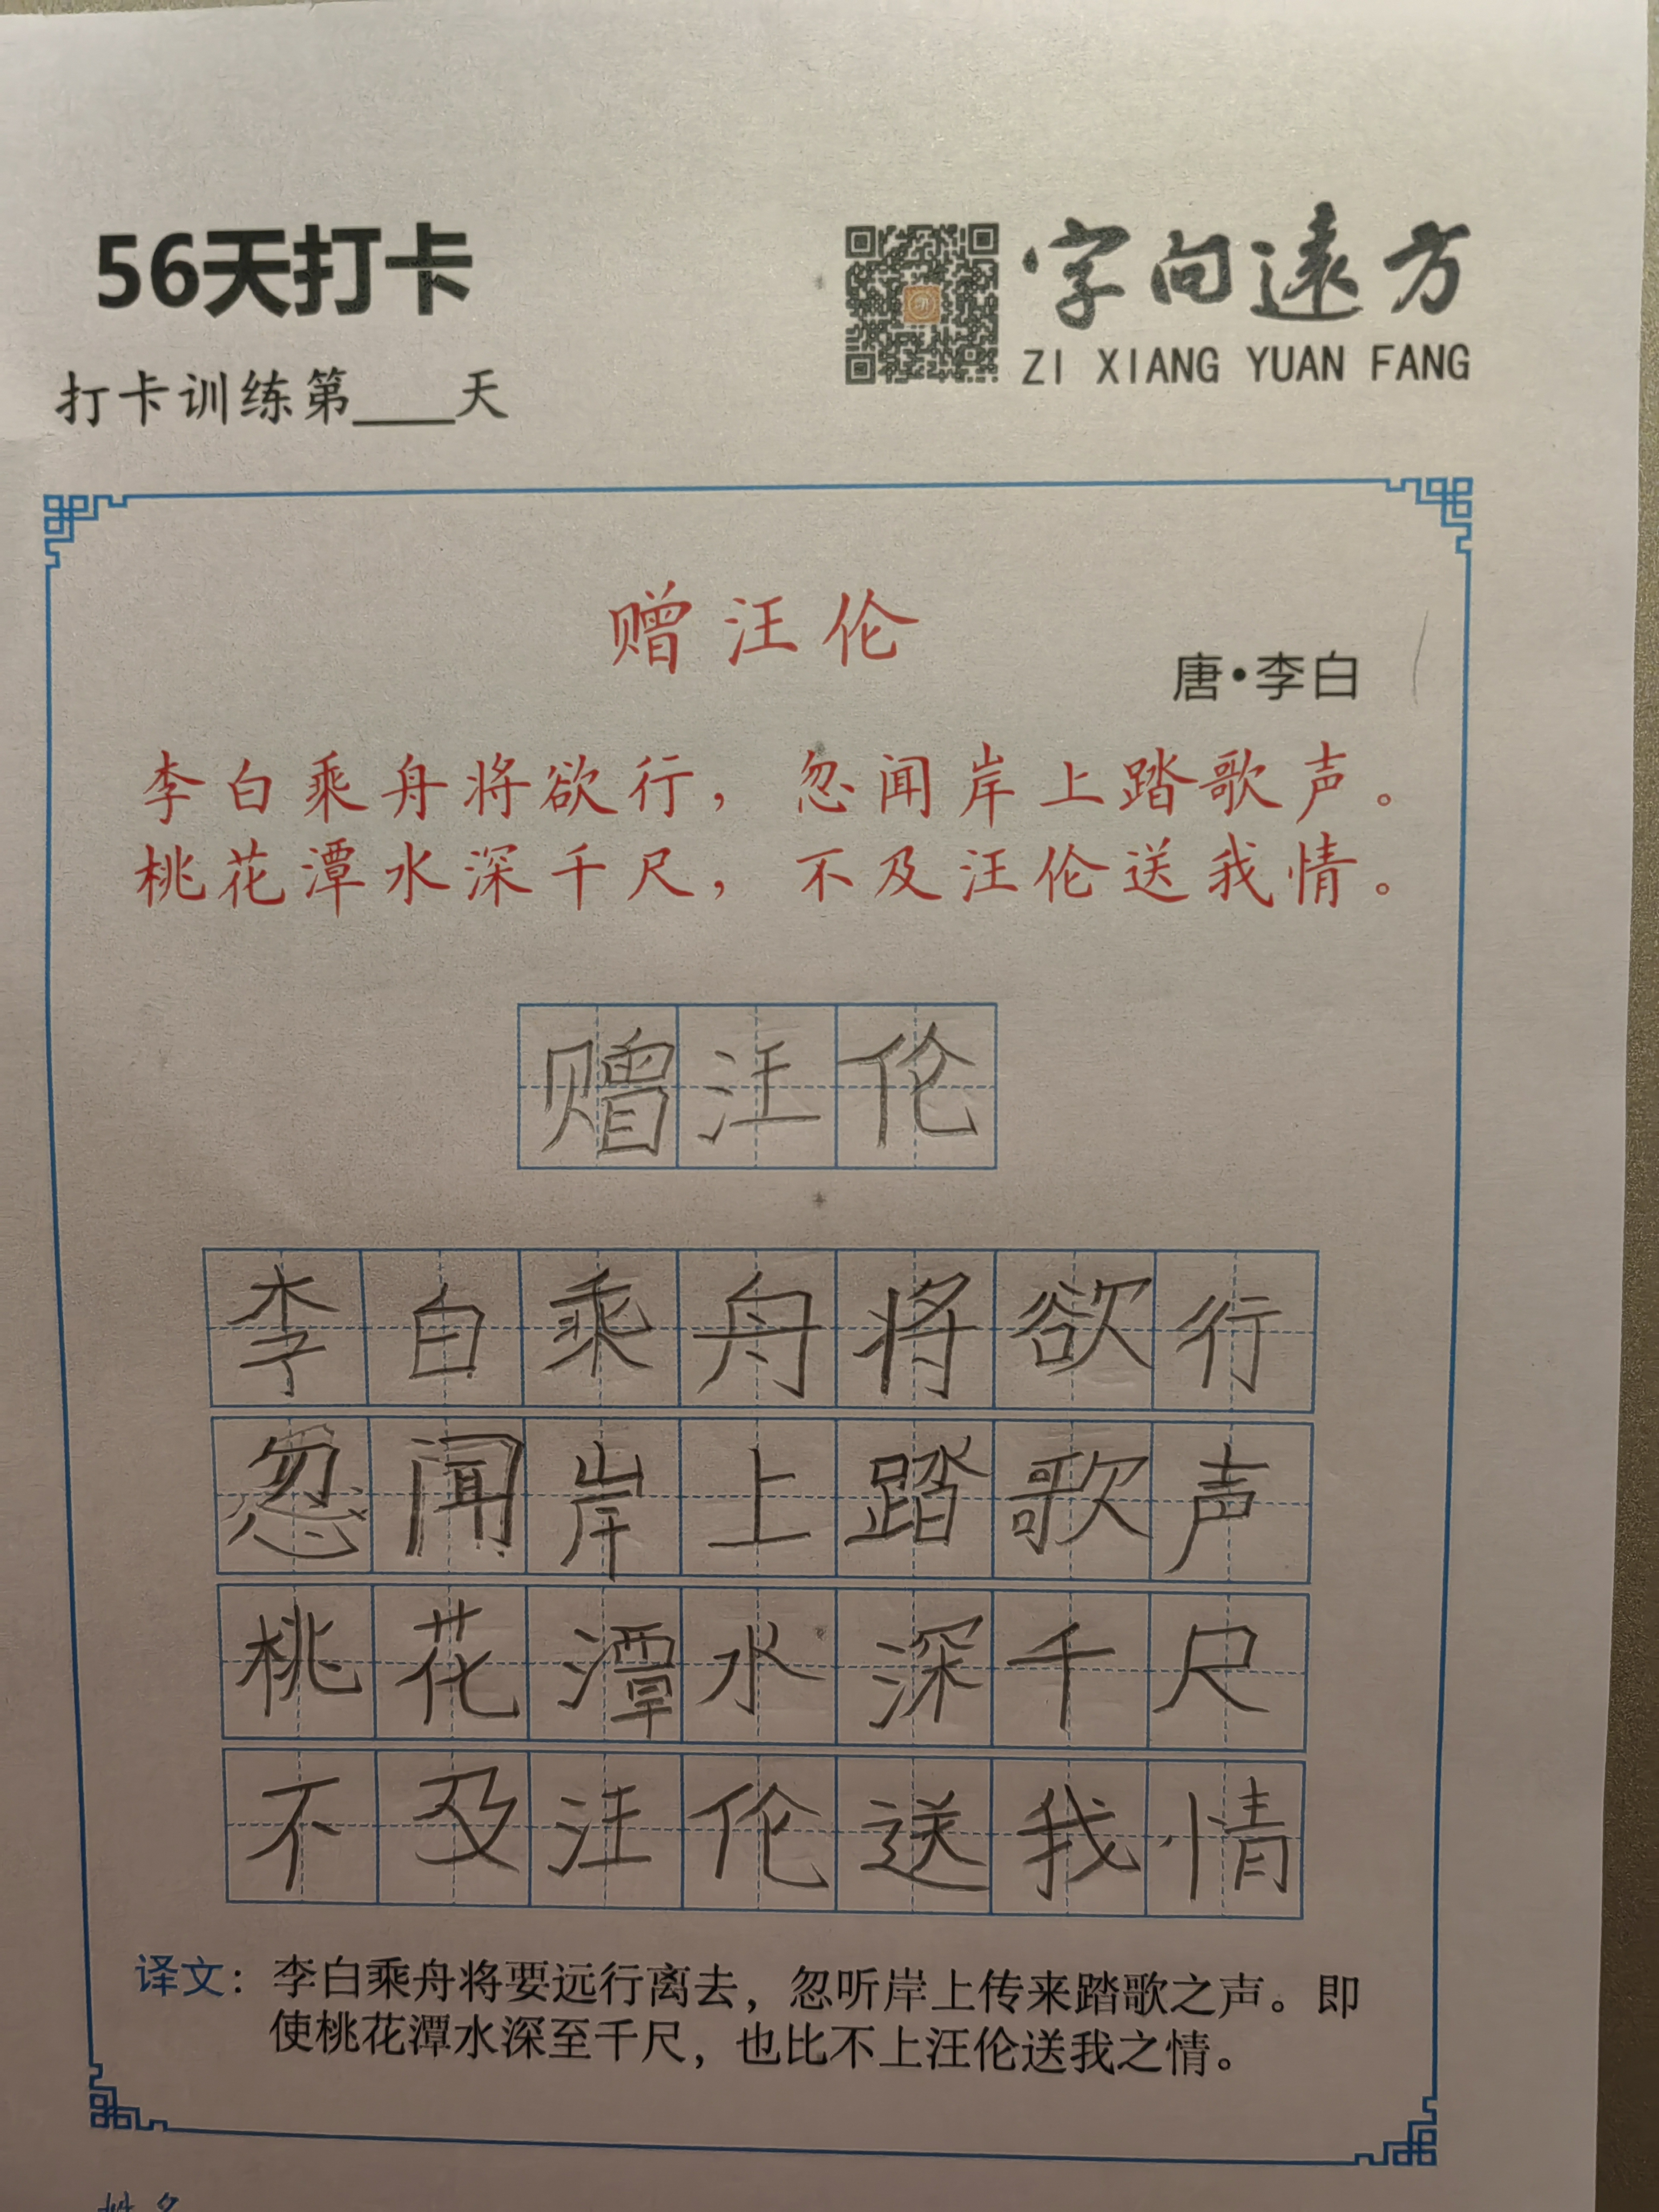 56天打卡
字向遠方
ZI XIANG YUAN FANG
打卡训练第____天
赠汪伦
唐·李白
李白乘舟将欲行，忽闻岸上踏歌声。
桃花潭水深千尺，不及汪伦送我情。
赠汪伦
李白乘舟将欲行
忽闻岸上踏歌声
桃花潭水深千尺
不及汪伦送我情
译文：李白乘舟将要远行离去，忽听岸上传来踏歌之声。即
使桃花潭水深至千尺，也比不上汪伦送我之情。